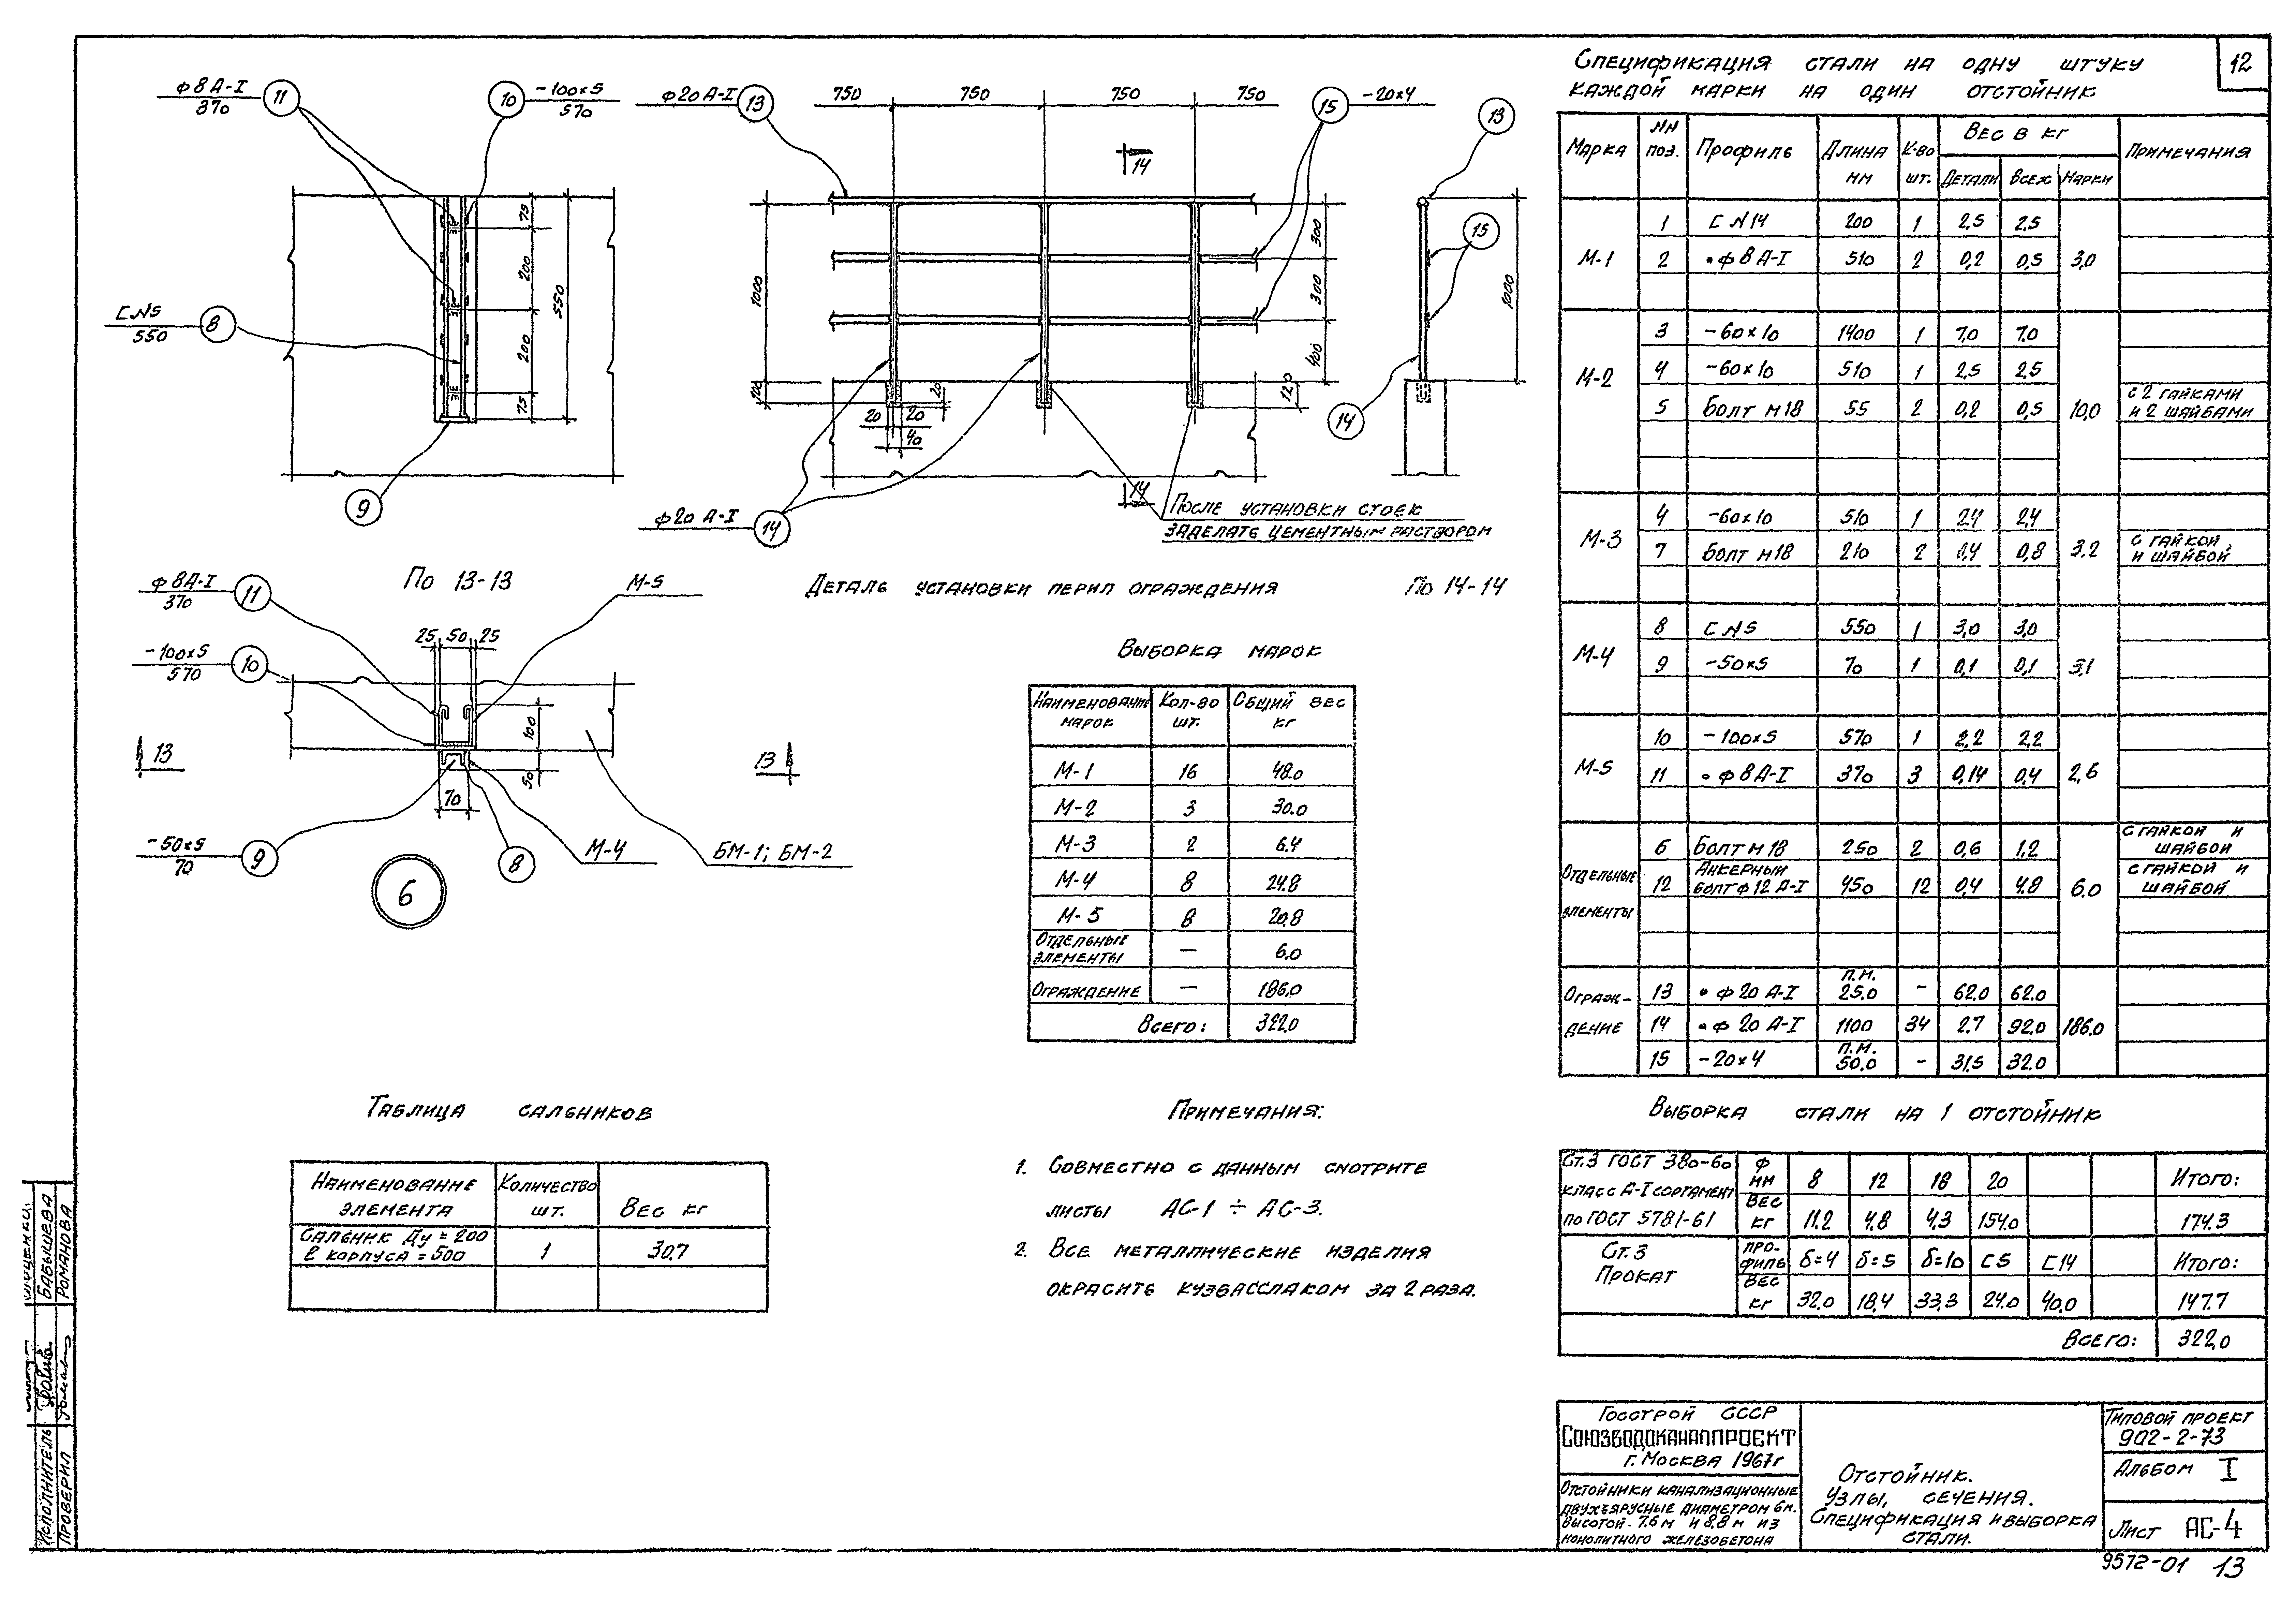 12
ф8 А-I
370
11
10
-100×5
570
С №5
550
8
9
75
200
200
75
550
По 13-13
ф20 А-I
13
750
750
750
750
15
-20×4
14
1000
100
20
20
20
40
300
300
400
120
ф20 А-I
14
14
После установки стоек
заделать цементным раствором
Деталь установки перил ограждения
13
15
14
1000
По 14-14
ф8А-I
370
11
М-5
-100×5
570
10
25 50 25
100
50
70
13
13
-50×5
70
9
8
М-4
БМ-1; БМ-2
6
Выборка марок
Наименование марок
Кол-во шт.
Общий вес кг
М-1 16 48.0
М-2 3 30.0
М-3 2 6.4
М-4 8 24.8
М-5 8 20.8
Отдельные элементы — 6.0
Ограждение — 186.0
Всего: 322.0
Таблица сальников
Наименование элемента
Количество шт.
Вес кг
Сальник Ду=200
ℓ корпуса=500
1
30.7
Примечания:
1. Совместно с данным смотрите
листы АС-1 ÷ АС-3.
2. Все металлические изделия
окрасить кузбасслаком за 2 раза.
Спецификация стали на одну штуку
каждой марки на один отстойник
Марка
NN поз.
Профиль
Длина мм
К-во шт.
Вес в кг
Детали
Всех
Марки
Примечания
М-1
1 С №14 200 1 2,5 2,5
2 •ф8 А-I 510 2 0,2 0,5 3,0
М-2
3 -60×10 1400 1 7,0 7.0
4 -60×10 510 1 2,5 2,5
5 Болт м18 55 2 0,2 0,5 10,0 с 2 гайками
и 2 шайбами
М-3
4 -60×10 510 1 2,4 2,4
7 Болт м18 210 2 0,4 0,8 3.2 с гайкой
и шайбой
М-4
8 С №5 550 1 3,0 3,0
9 -50×5 70 1 0,1 0,1 3,1
М-5
10 -100×5 570 1 2,2 2,2
11 •ф8А-I 370 3 0,14 0,4 2,6
Отдельные
элементы
6 Болт м18 250 2 0,6 1.2 с гайкой и
шайбой
12 Анкерный
болт ф12 А-I 450 12 0,4 4.8 6.0 с гайкой и
шайбой
Ограж-
дение
13 •ф20 А-I п.м.
25.0 - 62.0 62.0
14 •ф20 А-I 1100 34 2.7 92.0 186.0
15 -20×4 п.м.
50,0 - 31,5 32.0
Выборка стали на 1 отстойник
Ст.3 ГОСТ 380-60
класс А-I сортамент
по ГОСТ 5781-61
ф мм 8 12 18 20 Итого:
Вес кг 11.2 4.8 4,3 154.0 174.3
Ст.3
Прокат
Профиль δ=4 δ=5 δ=10 С5 С14 Итого:
Вес кг 32.0 18,4 33,3 24.0 40,0 147.7
Всего: 322.0
Госстрой СССР
Союзводоканалпроект
г. Москва 1967г
Отстойники канализационные
двухъярусные диаметром 6м.
высотой 7.6м и 8,8м из
монолитного железобетона
Отстойник.
Узлы, сечения.
Спецификация и выборка
стали.
Типовой проект
902-2-73
Альбом I
Лист АС-4
9572-01 13
Исполнитель
Бабышева
Проверил
Романова